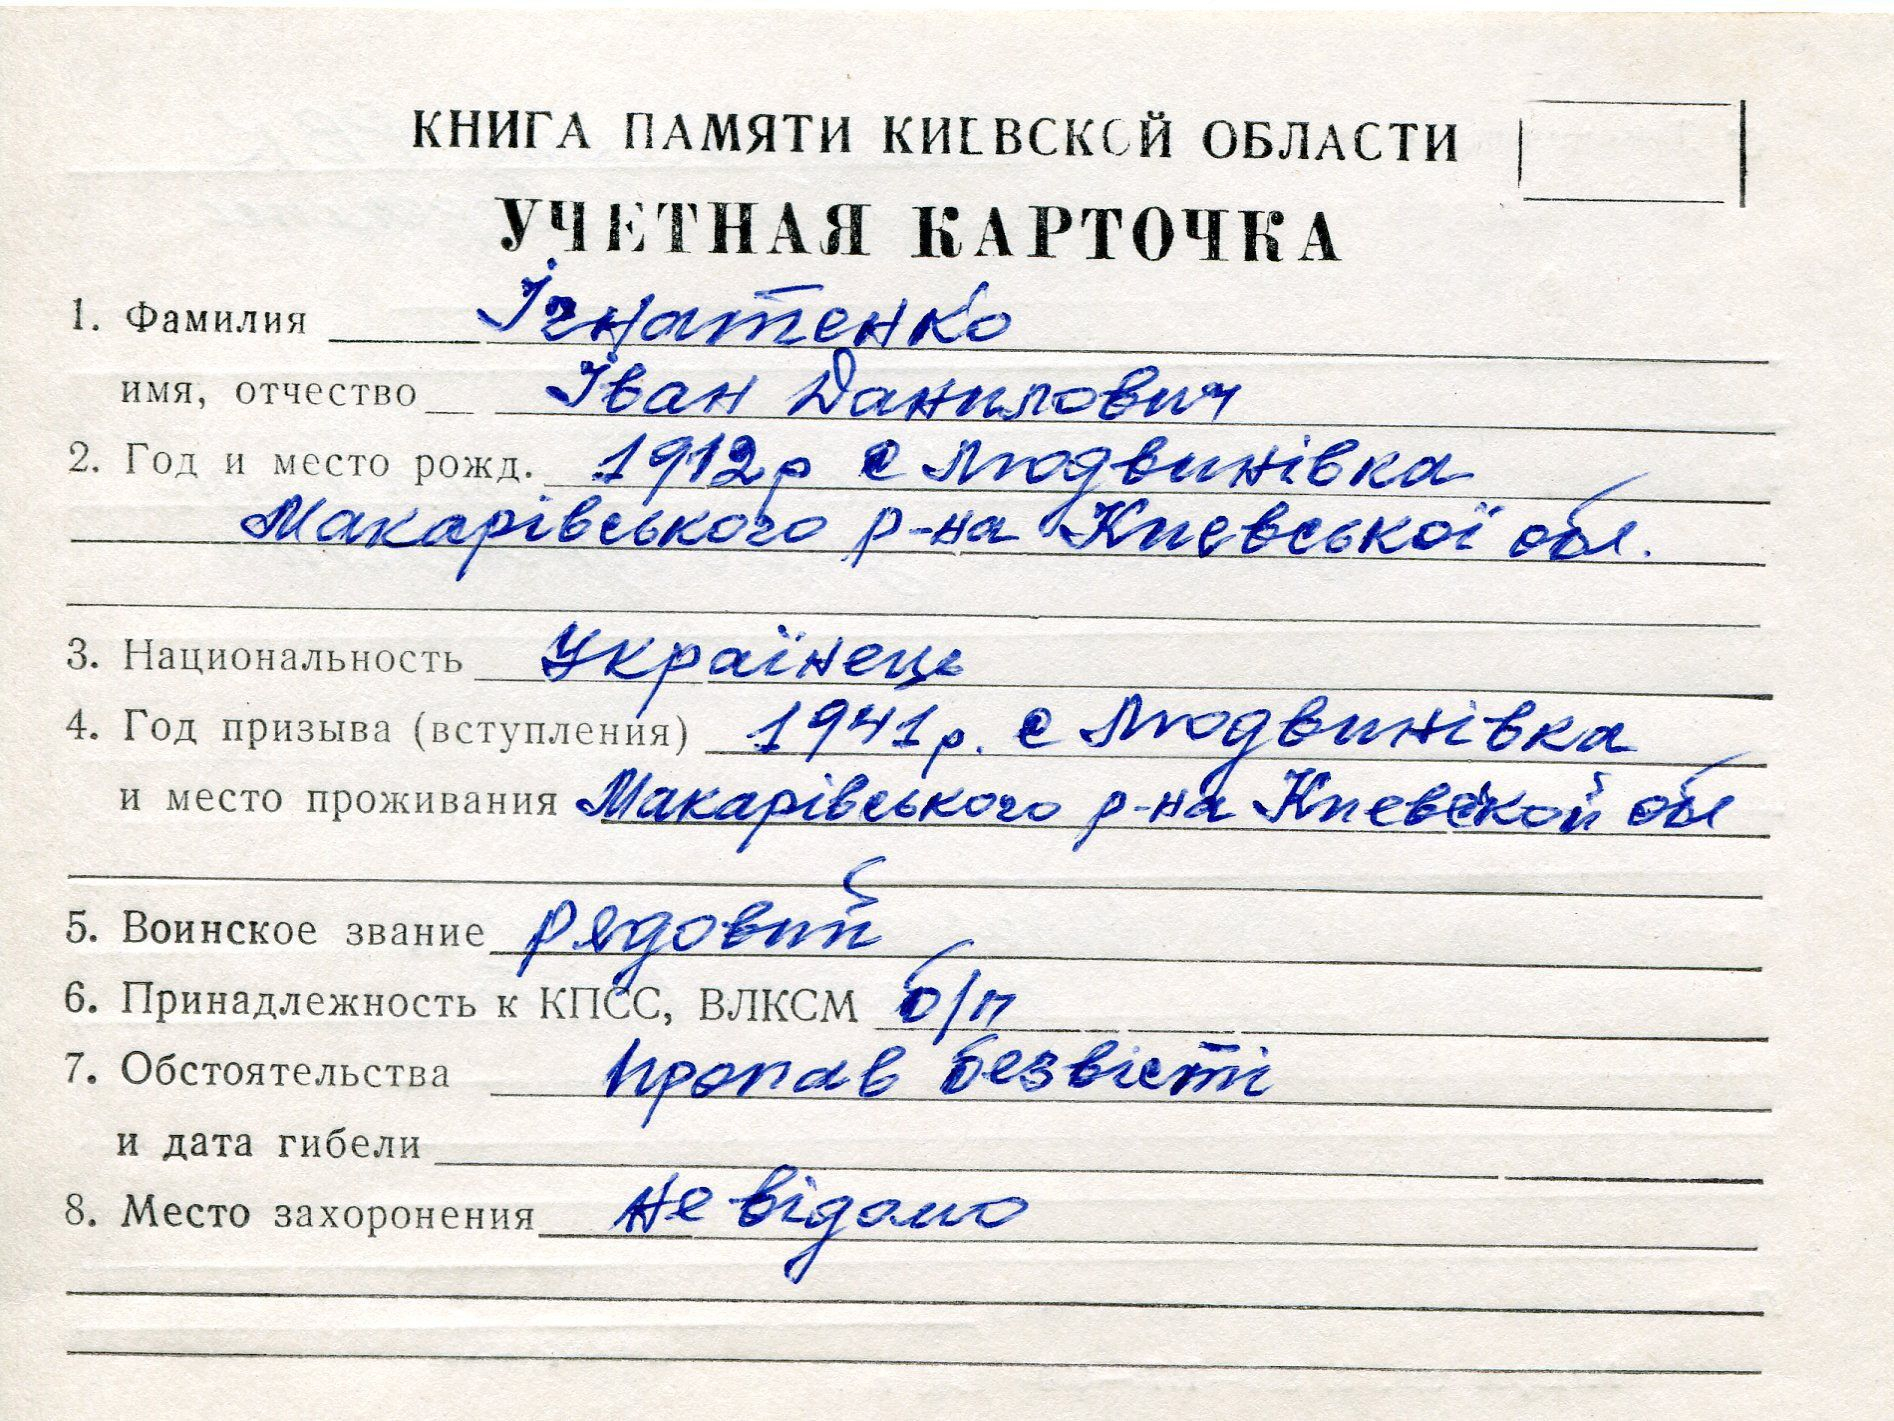 КНИГА ПАМЯТИ КИЕВСКОЙ ОБЛАСТИ
УЧЕТНАЯ КАРТОЧКА
1. Фамилия Ігнатенко
имя, отчество Іван Данилович
2. Год и место рожд. 1912р с Людвинівка
Макарівського р-на Киевської обл.
3. Национальность Українець
4. Год призыва (вступления) 1941р. с Людвинівка
и место проживания Макарівського р-на Киевской обл
5. Воинское звание рядовий
6. Принадлежность к КПСС, ВЛКСМ б/п
7. Обстоятельства пропав безвісті
и дата гибели
8. Место захоронения не відомо